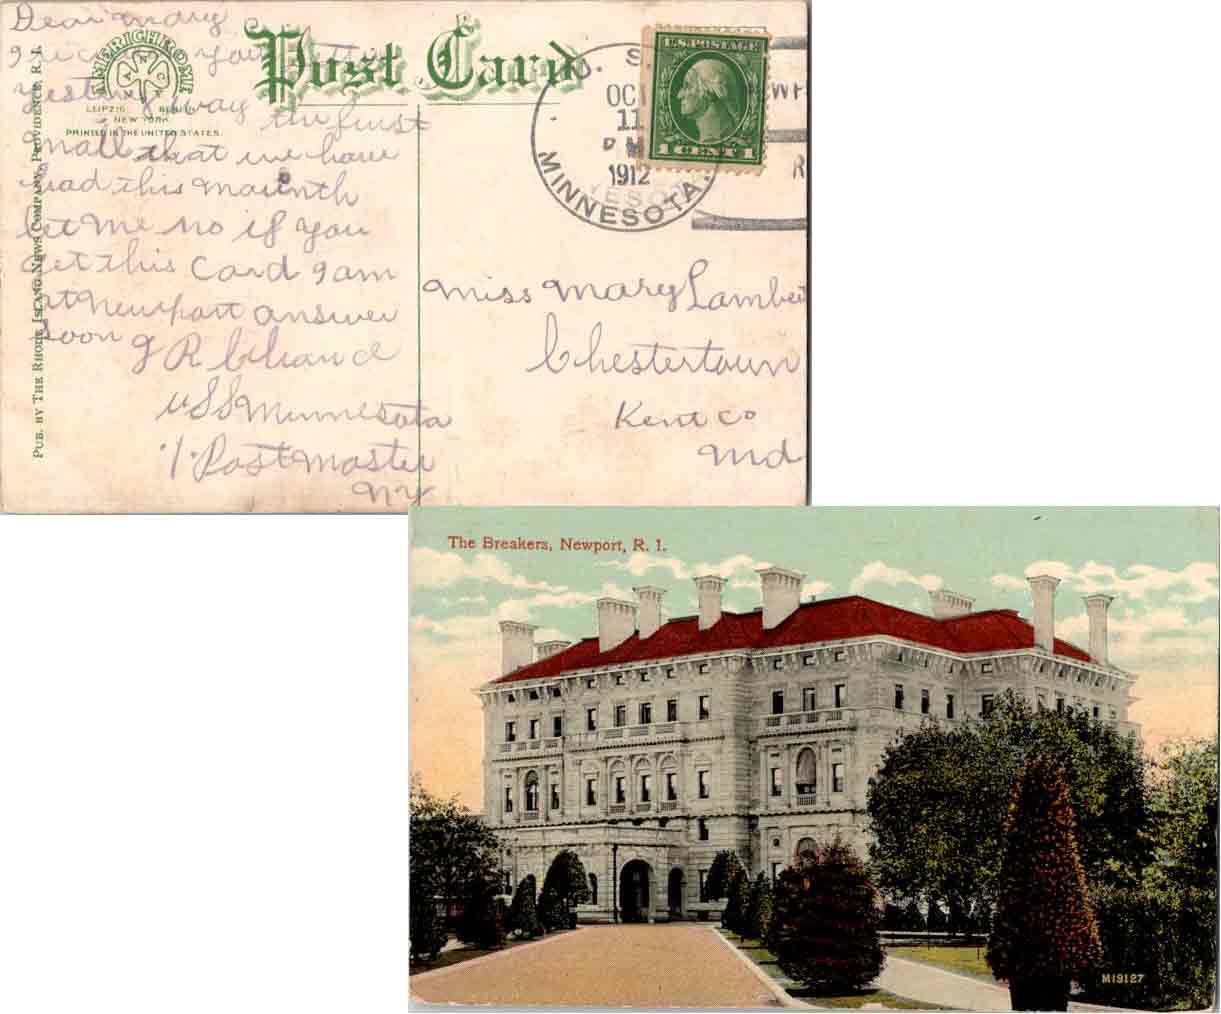 Dear Mary
I recieved your letter
yesterday the first
mail that we have
had this mounth
let me no if you
get this card I am
at Newport answer
soon J R Chance
USS Minnesota
%. Postmaster
NY
AMERICHROME
LEIPZIG BERLIN
NEW YORK
PRINTED IN THE UNITED STATES.
PUB. BY THE RHODE ISLAND NEWS COMPANY, PROVIDENCE, R. I.
Post Card
U. S. S.
OC
11
P M
1912
MINNESOTA.
U.S. POSTAGE
1 CENT 1
Miss Mary Lambert
Chestertown
Kent co
Md
The Breakers, Newport, R. I.
M19127